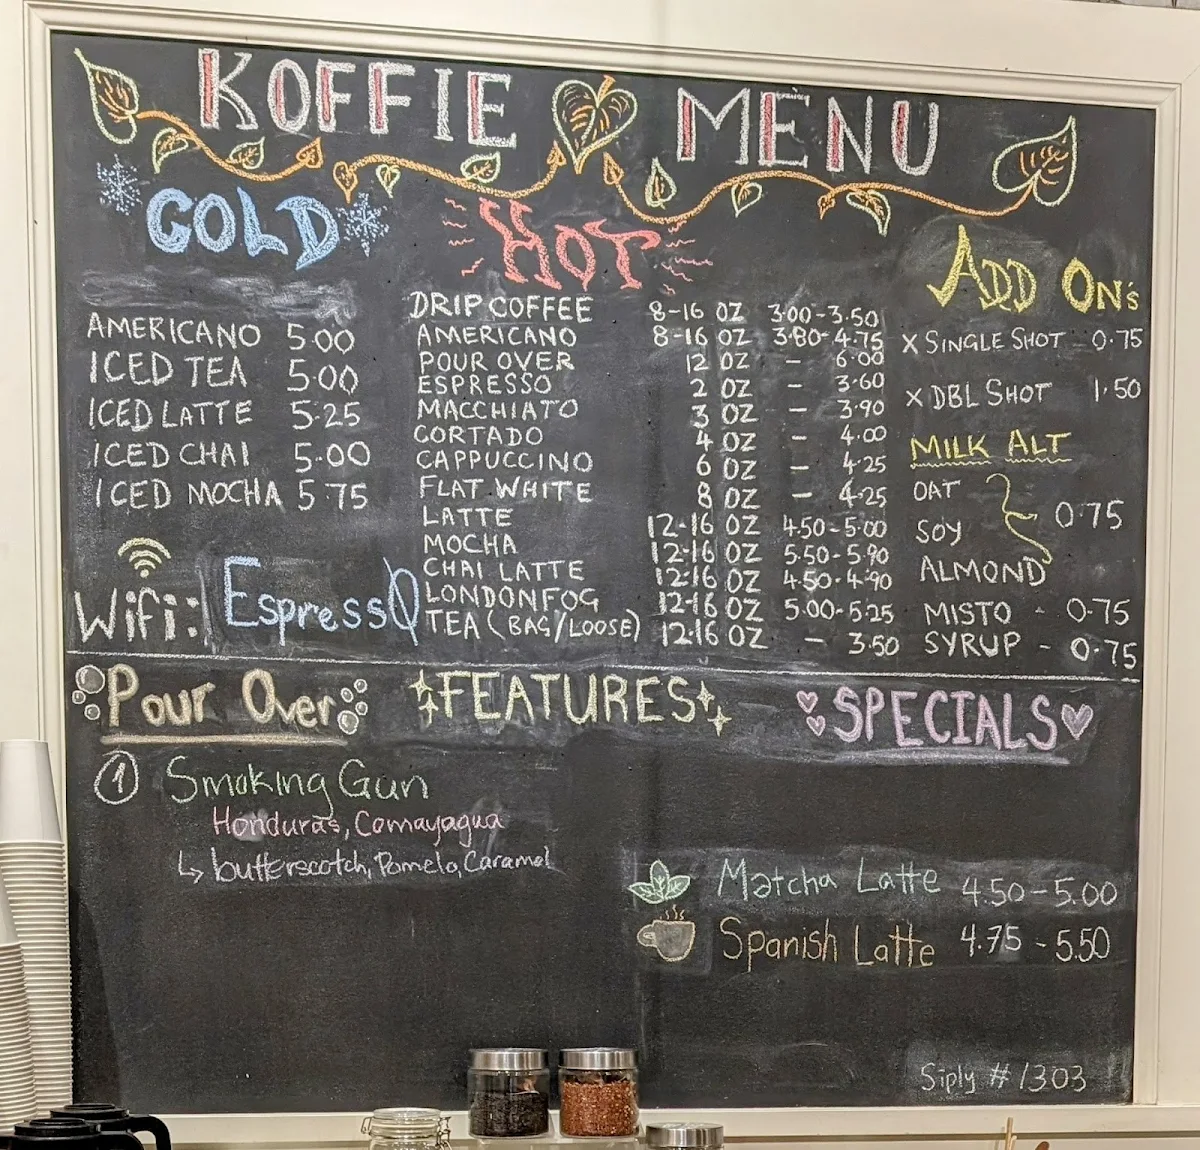 KOFFIE MENU
COLD
AMERICANO 5.00
ICED TEA 5.00
ICED LATTE 5.25
ICED CHAI 5.00
ICED MOCHA 5.75
Wifi: EspressQ
HOT
DRIP COFFEE 8-16 OZ 3.00-3.50
AMERICANO 8-16 OZ 3.80-4.75
POUR OVER 12 OZ - 6.00
ESPRESSO 2 OZ - 3.60
MACCHIATO 3 OZ - 3.90
CORTADO 4 OZ - 4.00
CAPPUCCINO 6 OZ - 4.25
FLAT WHITE 8 OZ - 4.25
LATTE 12-16 OZ 4.50-5.00
MOCHA 12-16 OZ 5.50-5.90
CHAI LATTE 12-16 OZ 4.50-4.90
LONDONFOG 12-16 OZ 5.00-5.25
TEA (BAG/LOOSE) 12-16 OZ - 3.50
ADD ON's
X SINGLE SHOT - 0.75
X DBL SHOT 1.50
MILK ALT
OAT
SOY 0.75
ALMOND
MISTO - 0.75
SYRUP - 0.75
Pour Over
FEATURES
SPECIALS
1 Smoking Gun
Honduras, Comayagua
↳ butterscotch, Pomelo, Caramel
Matcha Latte 4.50-5.00
Spanish Latte 4.75-5.50
Siply #1303